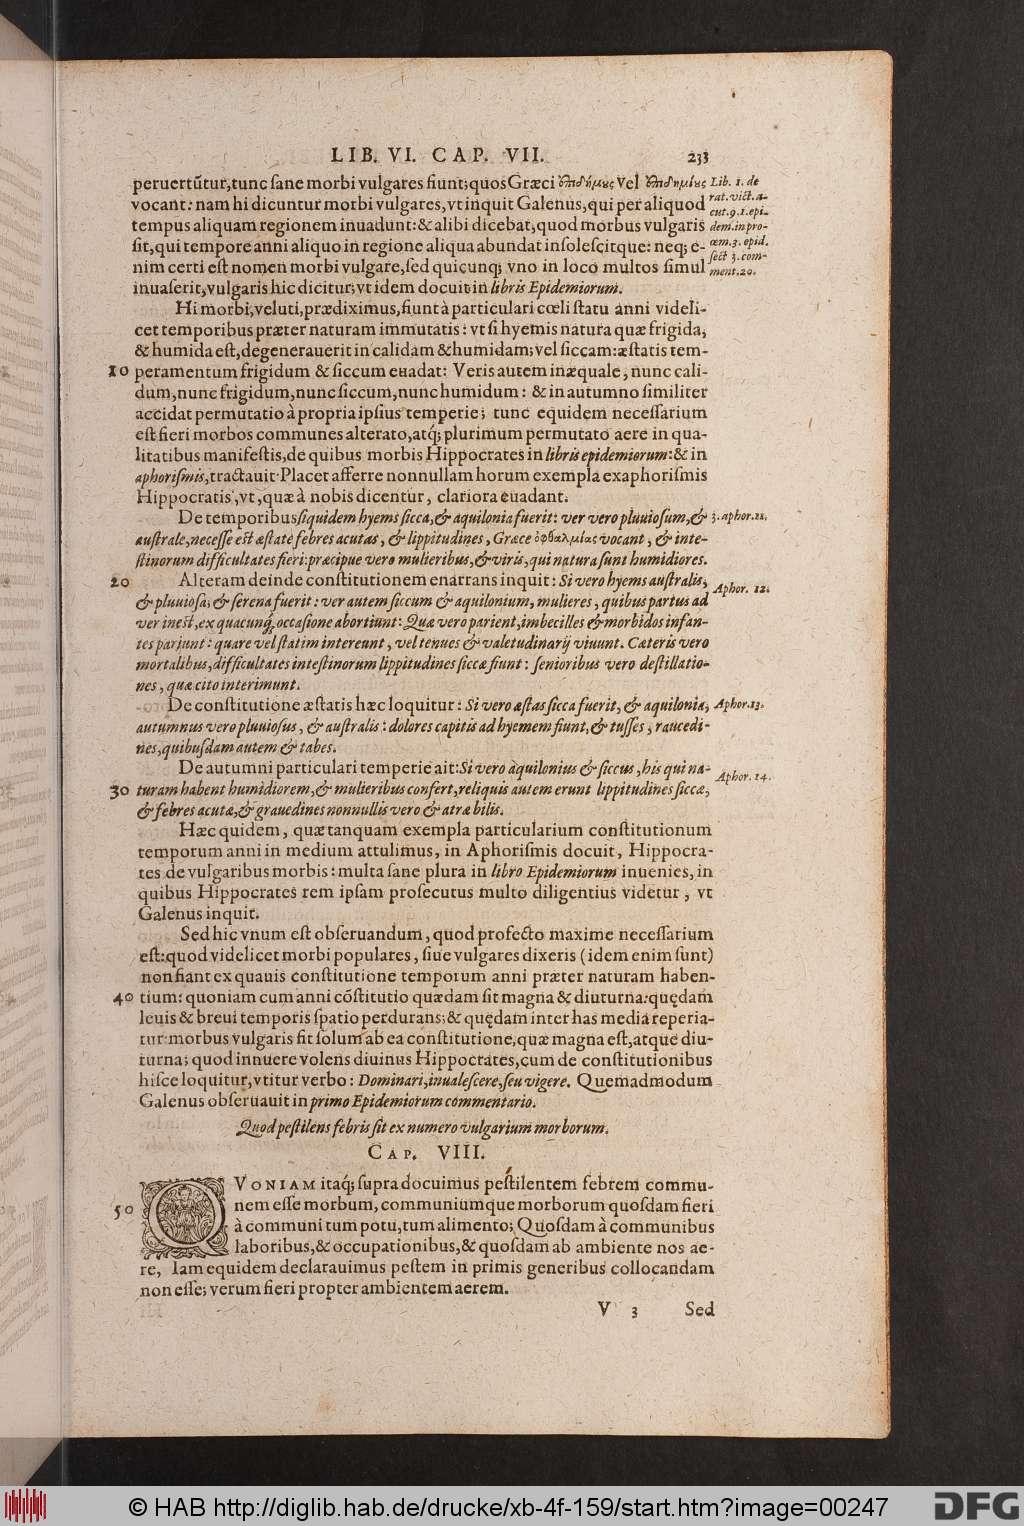 LIB. VI. CAP. VII. 233
peruertūtur, tunc sane morbi vulgares fiunt; quos Græci ἐπιδήμους vel ἐπιδημίους
vocant: nam hi dicuntur morbi vulgares, vt inquit Galenus, qui per aliquod
tempus aliquam regionem inuadunt: & alibi dicebat, quod morbus vulgaris
sit, qui tempore anni aliquo in regione aliqua abundat insolescitque: neq; e-
nim certi est nomen morbi vulgare, sed quicunq; vno in loco multos simul
inuaserit, vulgaris hic dicitur; vt idem docuit in libris Epidemiorum.
Lib. 1. de
rat. vict. a-
cut. 9. 1. epi-
dem. in pro-
œm. 3. epid.
sect 3. com-
ment. 20.
Hi morbi, veluti, prædiximus, fiunt à particulari cœli statu anni videli-
cet temporibus præter naturam immutatis: vt si hyemis natura quæ frigida,
& humida est, degenerauerit in calidam & humidam; vel siccam: æstatis tem-
10 peramentum frigidum & siccum euadat: Veris autem inæquale, nunc cali-
dum, nunc frigidum, nunc siccum, nunc humidum: & in autumno similiter
accidat permutatio à propria ipsius temperie; tunc equidem necessarium
est fieri morbos communes alterato, atq; plurimum permutato aere in qua-
litatibus manifestis, de quibus morbis Hippocrates in libris epidemiorum: & in
aphorismis, tractauit. Placet afferre nonnullam horum exempla ex aphorismis
Hippocratis, vt, quæ à nobis dicentur, clariora euadant.
De temporibus siquidem hyems sicca, & aquilonia fuerit: ver vero pluuiosum, & 3. aphor. 11.
australe, necesse est æstate febres acutas, & lippitudines, Græce ὀφθαλμίας vocant, & inte-
stinorum difficultates fieri: præcipue vero mulieribus, & viris, qui natura sunt humidiores.
20 Alteram deinde constitutionem enarrans inquit: Si vero hyems australis, Aphor. 12.
& pluuiosa; & serena fuerit: ver autem siccum & aquilonium, mulieres, quibus partus ad
ver inest, ex quacunq; occasione abortiunt: Quæ vero parient, imbecilles & morbidos infan-
tes pariunt: quare vel statim intereunt, vel tenues & valetudinarij viuunt. Cæteris vero
mortalibus, difficultates intestinorum lippitudines siccæ fiunt: senioribus vero destillatio-
nes, quæ cito interimunt.
De constitutione æstatis hæc loquitur: Si vero æstas sicca fuerit, & aquilonia, Aphor. 13.
autumnus vero pluuiosus, & australis: dolores capitis ad hyemem fiunt, & tusses, raucedi-
nes, quibusdam autem & tabes.
De autumni particulari temperie ait: Si vero aquilonius & siccus, his qui na- Aphor. 14.
30 turam habent humidiorem, & mulieribus confert, reliquis autem erunt lippitudines siccæ,
& febres acutæ, & grauedines nonnullis vero & atræ bilis.
Hæc quidem, quæ tanquam exempla particularium constitutionum
temporum anni in medium attulimus, in Aphorismis docuit, Hippocra-
tes de vulgaribus morbis: multa sane plura in libro Epidemiorum inuenies, in
quibus Hippocrates rem ipsam prosecutus multo diligentius videtur, vt
Galenus inquit.
Sed hic vnum est obseruandum, quod profecto maxime necessarium
est: quod videlicet morbi populares, siue vulgares dixeris (idem enim sunt)
non fiant ex quauis constitutione temporum anni præter naturam haben-
40 tium: quoniam cum anni cōstitutio quædam sit magna & diuturna: quędam
leuis & breui temporis spatio perdurans; & quędam inter has media reperia-
tur: morbus vulgaris fit solum ab ea constitutione, quæ magna est, atque diu-
turna; quod innuere volens diuinus Hippocrates, cum de constitutionibus
hisce loquitur, vtitur verbo: Dominari, inualescere, seu vigere. Quemadmodum
Galenus obseruauit in primo Epidemiorum commentario.
Quod pestilens febris sit ex numero vulgarium morborum.
CAP. VIII.
QVONIAM itaq; supra docuimus pestilentem febrem commu-
50 nem esse morbum, communiumque morborum quosdam fieri
à communi tum potu, tum alimento; Quosdam à communibus
laboribus, & occupationibus, & quosdam ab ambiente nos ae-
re, Iam equidem declarauimus pestem in primis generibus collocandam
non esse; verum fieri propter ambientem aerem.
V 3 Sed
© HAB http://diglib.hab.de/drucke/xb-4f-159/start.htm?image=00247
DFG